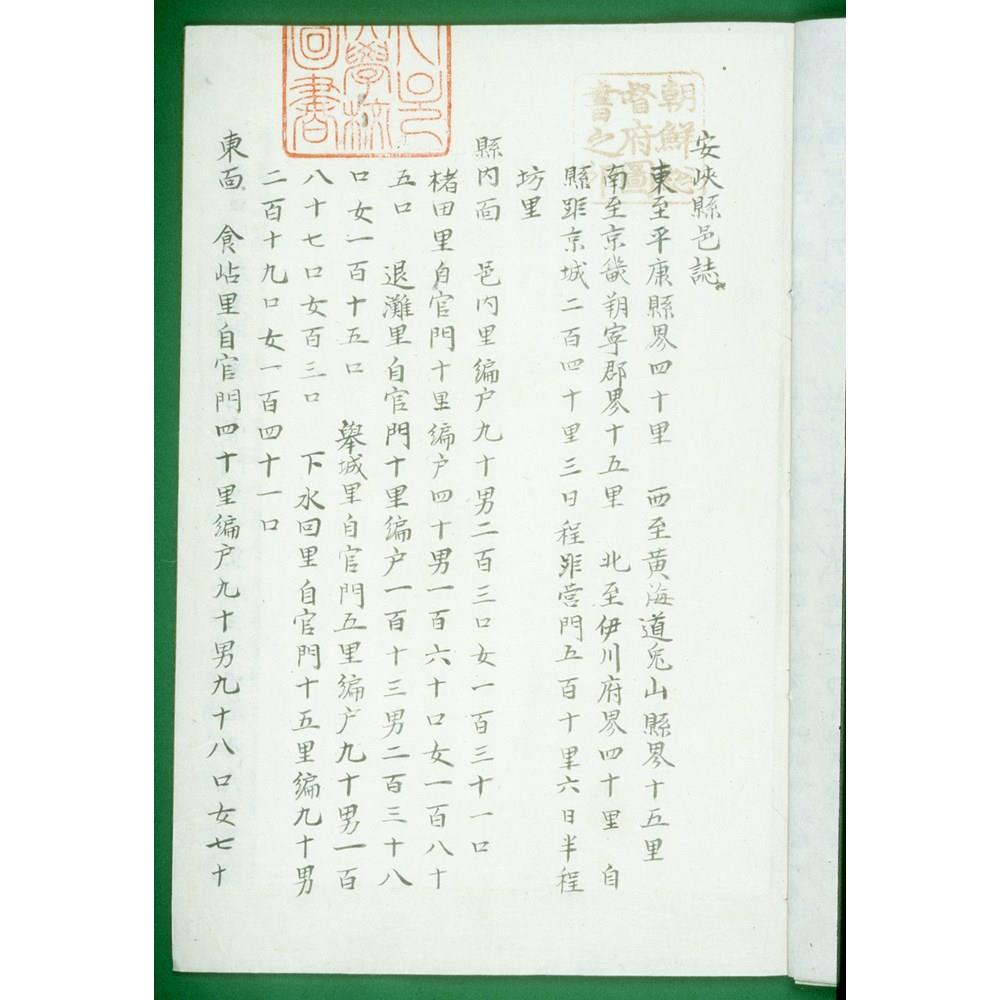 安峽縣邑誌
東至平康縣界四十里 西至黃海道兎山縣界十五里
南至京畿朔寧郡界十五里 北至伊川府界四十里 自
縣距京城二百四十里三日程距營門五百十里六日半程
坊里
縣內面 邑內里編户九十男二百三口女一百三十一口
楮田里自官門十里編户四十男一百六十口女一百八十
五口 退灘里自官門十里編户一百十三男二百三十八
口女一百十五口 舉城里自官門五里編户九十男一百
八十七口女百三口 下水回里自官門十五里編九十男
二百十九口女一百四十一口
東面 食岾里自官門四十里編户九十男九十八口女七十
朝鮮總
督府圖
書之印